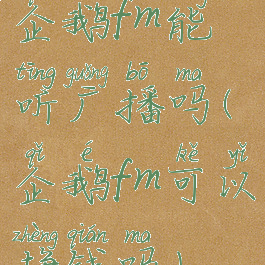 企鹅fm能
tīng guǎng bō ma
听广播吗(
qǐ é kě yǐ
企鹅fm可以
zhèng qián ma
挣钱吗)